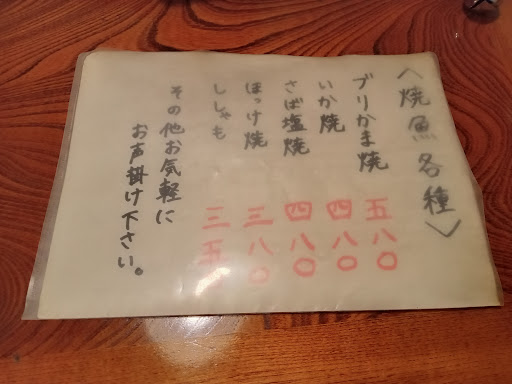 〈焼魚各種〉
ブリかま焼 五八〇
いか焼 四八〇
さば塩焼 四八〇
ほっけ焼 三八〇
ししゃも 三五
その他お気軽に
お声掛け下さい。